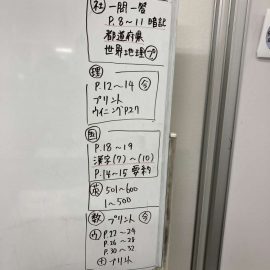 社 一問一答
P.8〜11 暗記
都道府県
世界地理 プ
理
P.12〜14 今
プリント
ウイニング P27
国
P.18〜19
漢字(7)〜(10)
P.14〜15 要約
英 501〜600
1〜500
数 プリント 今
ウ P.22〜24
P.26〜28
P.30〜32
プリント